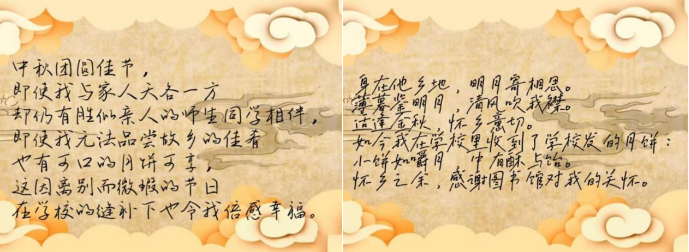 中秋团圆佳节，
即使我与家人天各一方
却仍有胜似亲人的师生同学相伴，
即使我无法品尝故乡的佳肴
也有可口的月饼可享，
这因离别而微憾的节日
在学校的缝补下也令我倍感幸福。
身在他乡地，明月寄相思。
薄暮鉴明月，清风吹我襟。
适逢金秋，怀乡意切。
如今我在学校里收到了学校发的月饼：
小饼如嚼月，中有酥与饴。
怀乡之余，感谢图书馆对我的关怀。